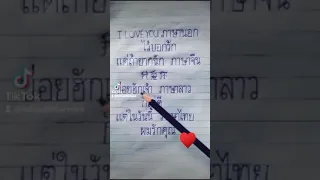 I LOVE YOU ภาษานอก
ไว้บอกรัก
แต่ถ้ายากรัก ภาษาจีน
我爱你
ข่อยฮักเจ้า ภาษาลาว
แต่ในวันนี้ ภาษาไทย
ผมรักคุณ
TikTok
แต่ในวันนี้